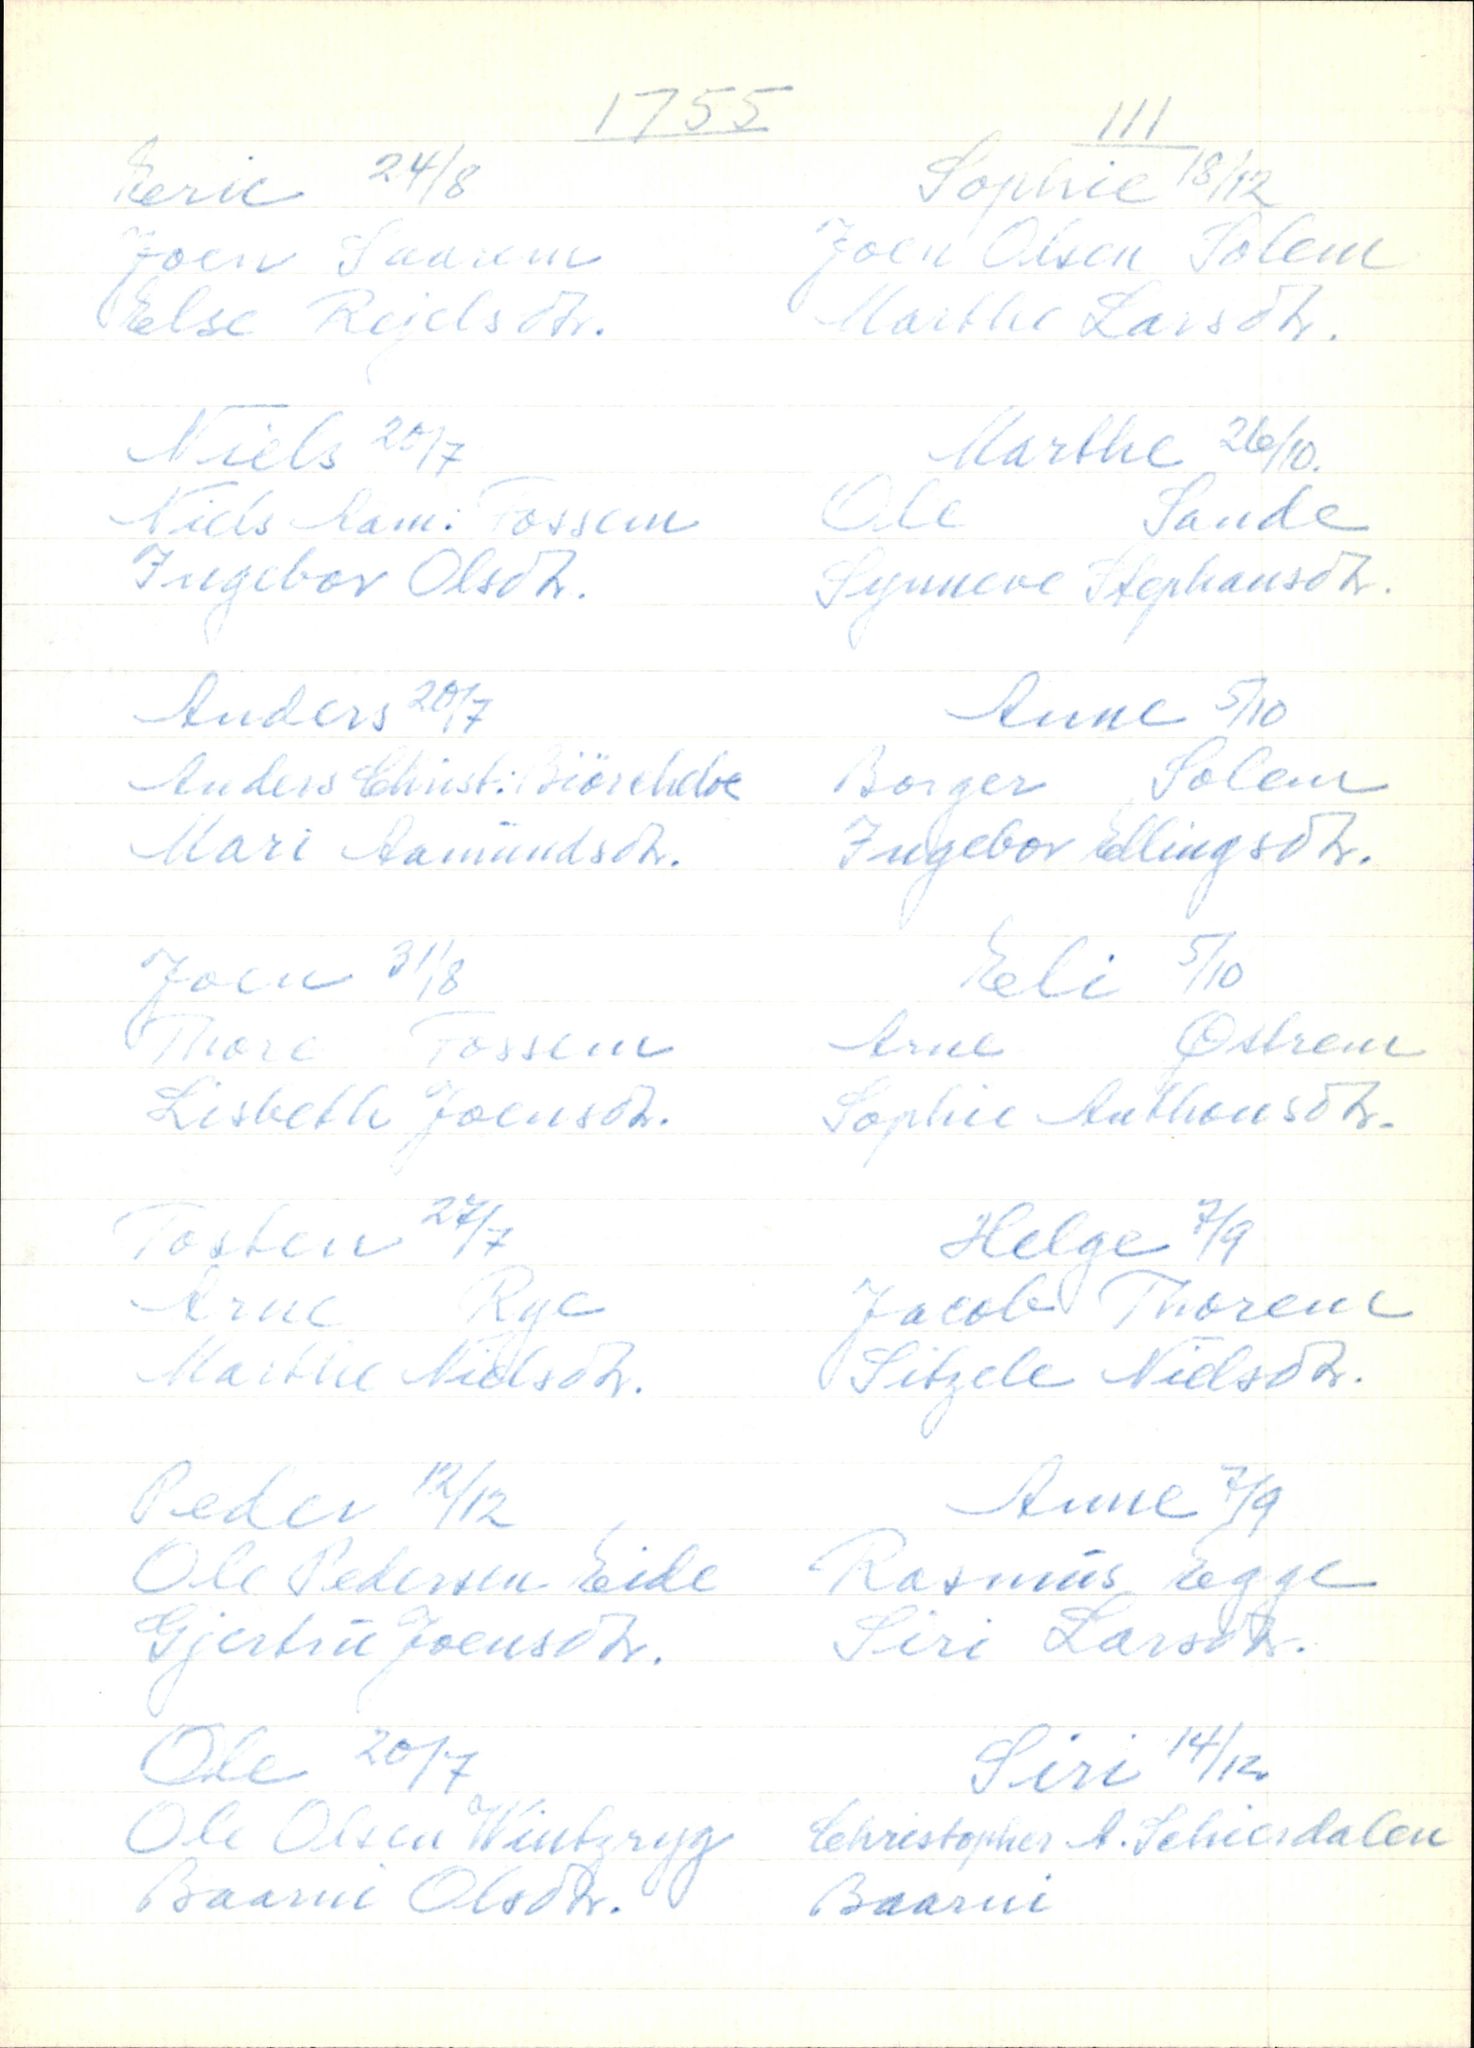 1755
111
Eeric 24/8
Joen Saarem
Else Rejelsdtr.
Niels 20/7
Niels Aam: Fossem
Ingebor Olsdtr.
Anders 20/7
Anders Christ: Biörcheloe
Mari Aamündsdtr.
Joen 31/8
Thore Fossem
Lisbeth Joensdtr.
Tosten 27/7
Arne Rye
Marthe Nielsdtr.
Peder 12/12
Ole Pedersen Eide
Gjertrü Joensdtr.
Ole 20/7
Ole Olsen Wintzryg
Baarni Olsdtr.
Sophie 18/12
Joen Olsen Solem
Marthe Larsdtr.
Marthe 26/10.
Ole Sande
Synneve Stephansdtr.
Anne 5/10
Borger Solem
Ingebor Ellingsdtr.
Eeli 5/10
Arne Østrem
Sophie Anthonsdtr.
Helge 7/9
Jacob Thorem
Sitzele Nielsdtr.
Anne 7/9
Rasmüs Egge
Siri Larsdtr.
Siri 14/12
Christopher A. Schierdalen
Baarni